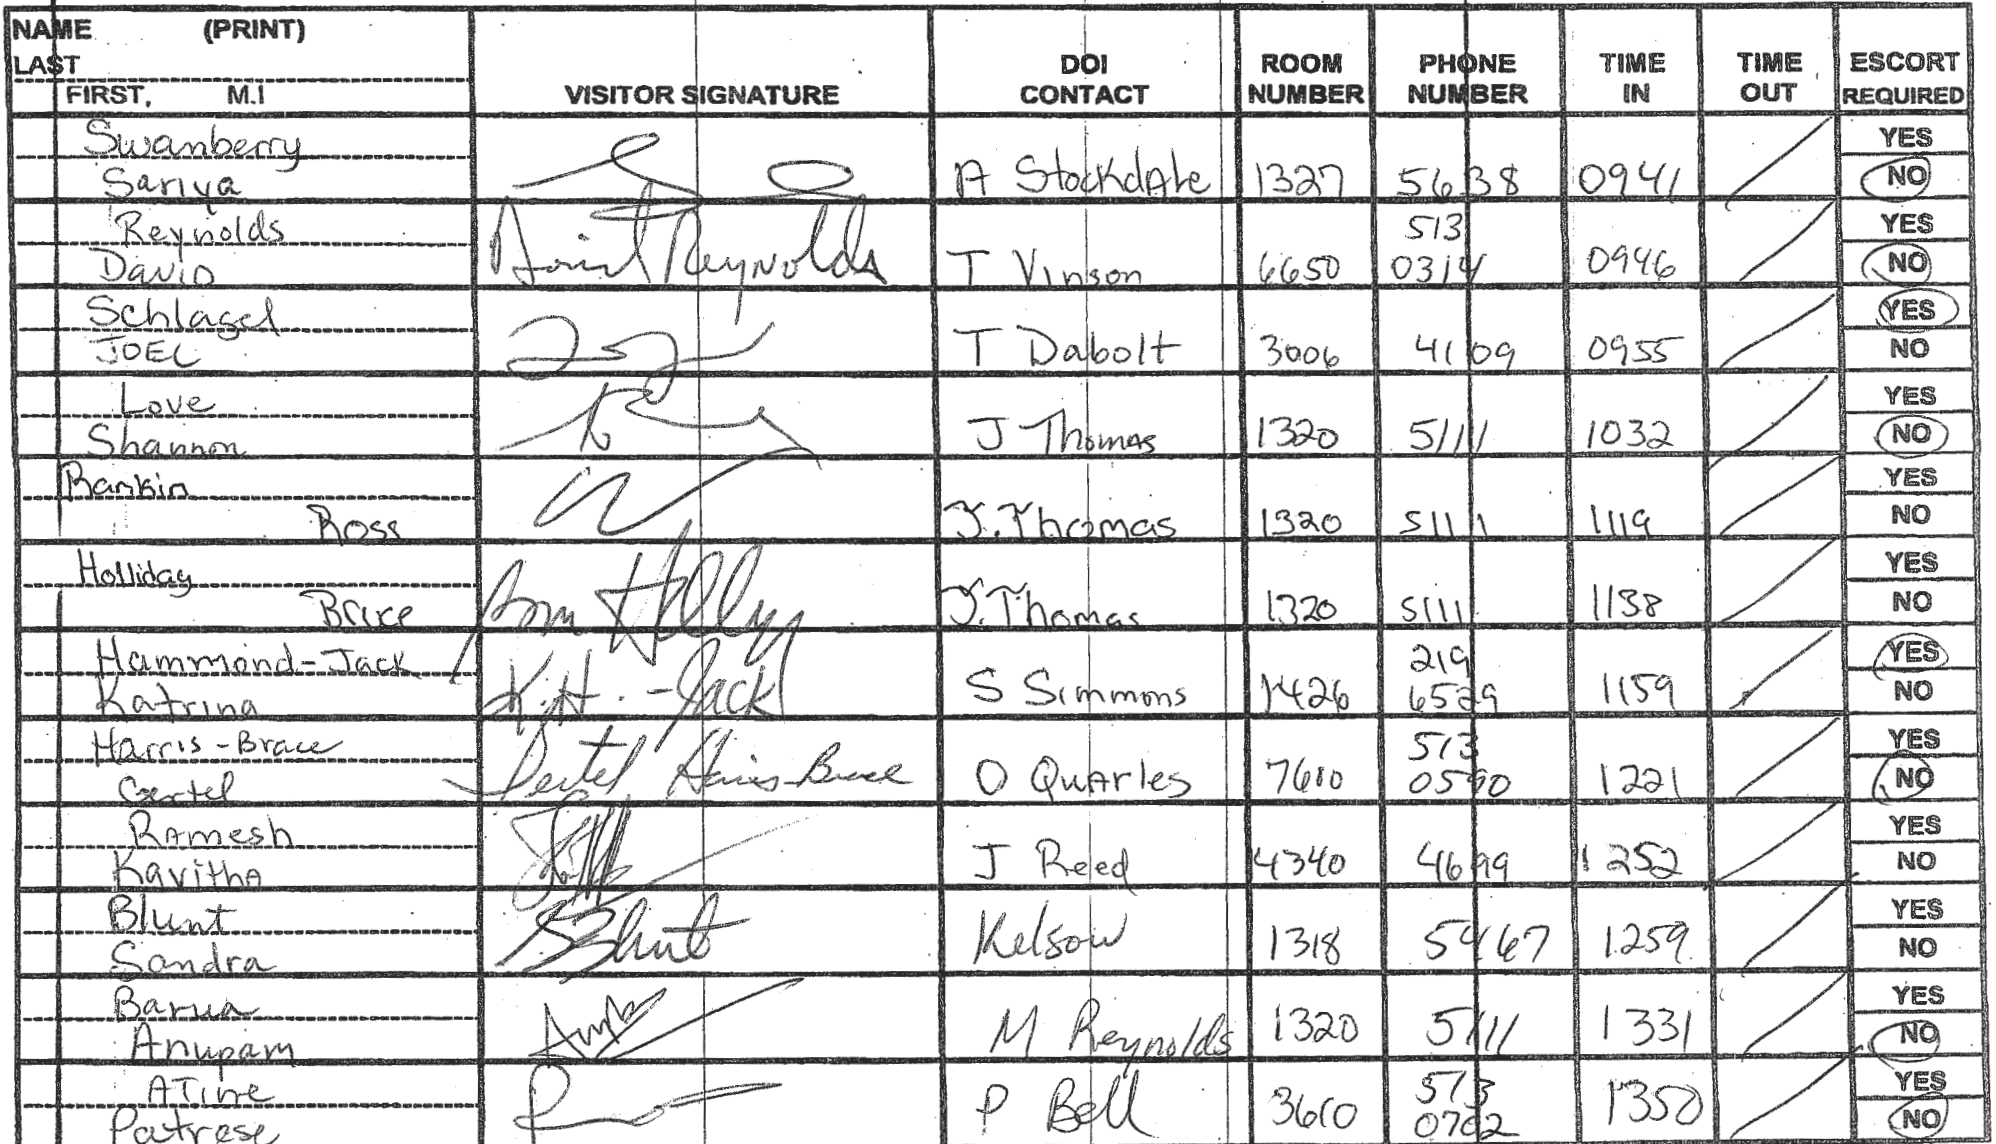 NAME (PRINT)
LAST
FIRST, M.I
VISITOR SIGNATURE
DOI CONTACT
ROOM NUMBER
PHONE NUMBER
TIME IN
TIME OUT
ESCORT REQUIRED
Swanberry
Sariya
A Stockdale 1327 5638 0941
YES
NO
Reynolds
David
David Reynolds
T Vinson 6650 513 0314 0946
YES
NO
Schlagel
JOEL
T Dabolt 3006 4109 0955
YES
NO
Love
Shannon
J Thomas 1320 5111 1032
YES
NO
Rankin
Ross
J. Thomas 1320 5111 1119
YES
NO
Holliday
Brice
J. Thomas 1320 5111 1138
YES
NO
Hammond-Jack
Katrina
K. H. -Jack
S Simmons 1426 219 6529 1159
YES
NO
Harris-Brace
Harris-Brace
O Quarles 7610 513 0590 1221
YES
NO
Ramesh
Kavitha
J Reed 4340 4699 1252
YES
NO
Blunt
Sandra
S Blunt
Kelsow 1318 5467 1259
YES
NO
Barua
Anupam
M Reynolds 1320 5111 1331
YES
NO
Atine
Patrese
P Bell 3610 513 0702 1350
YES
NO